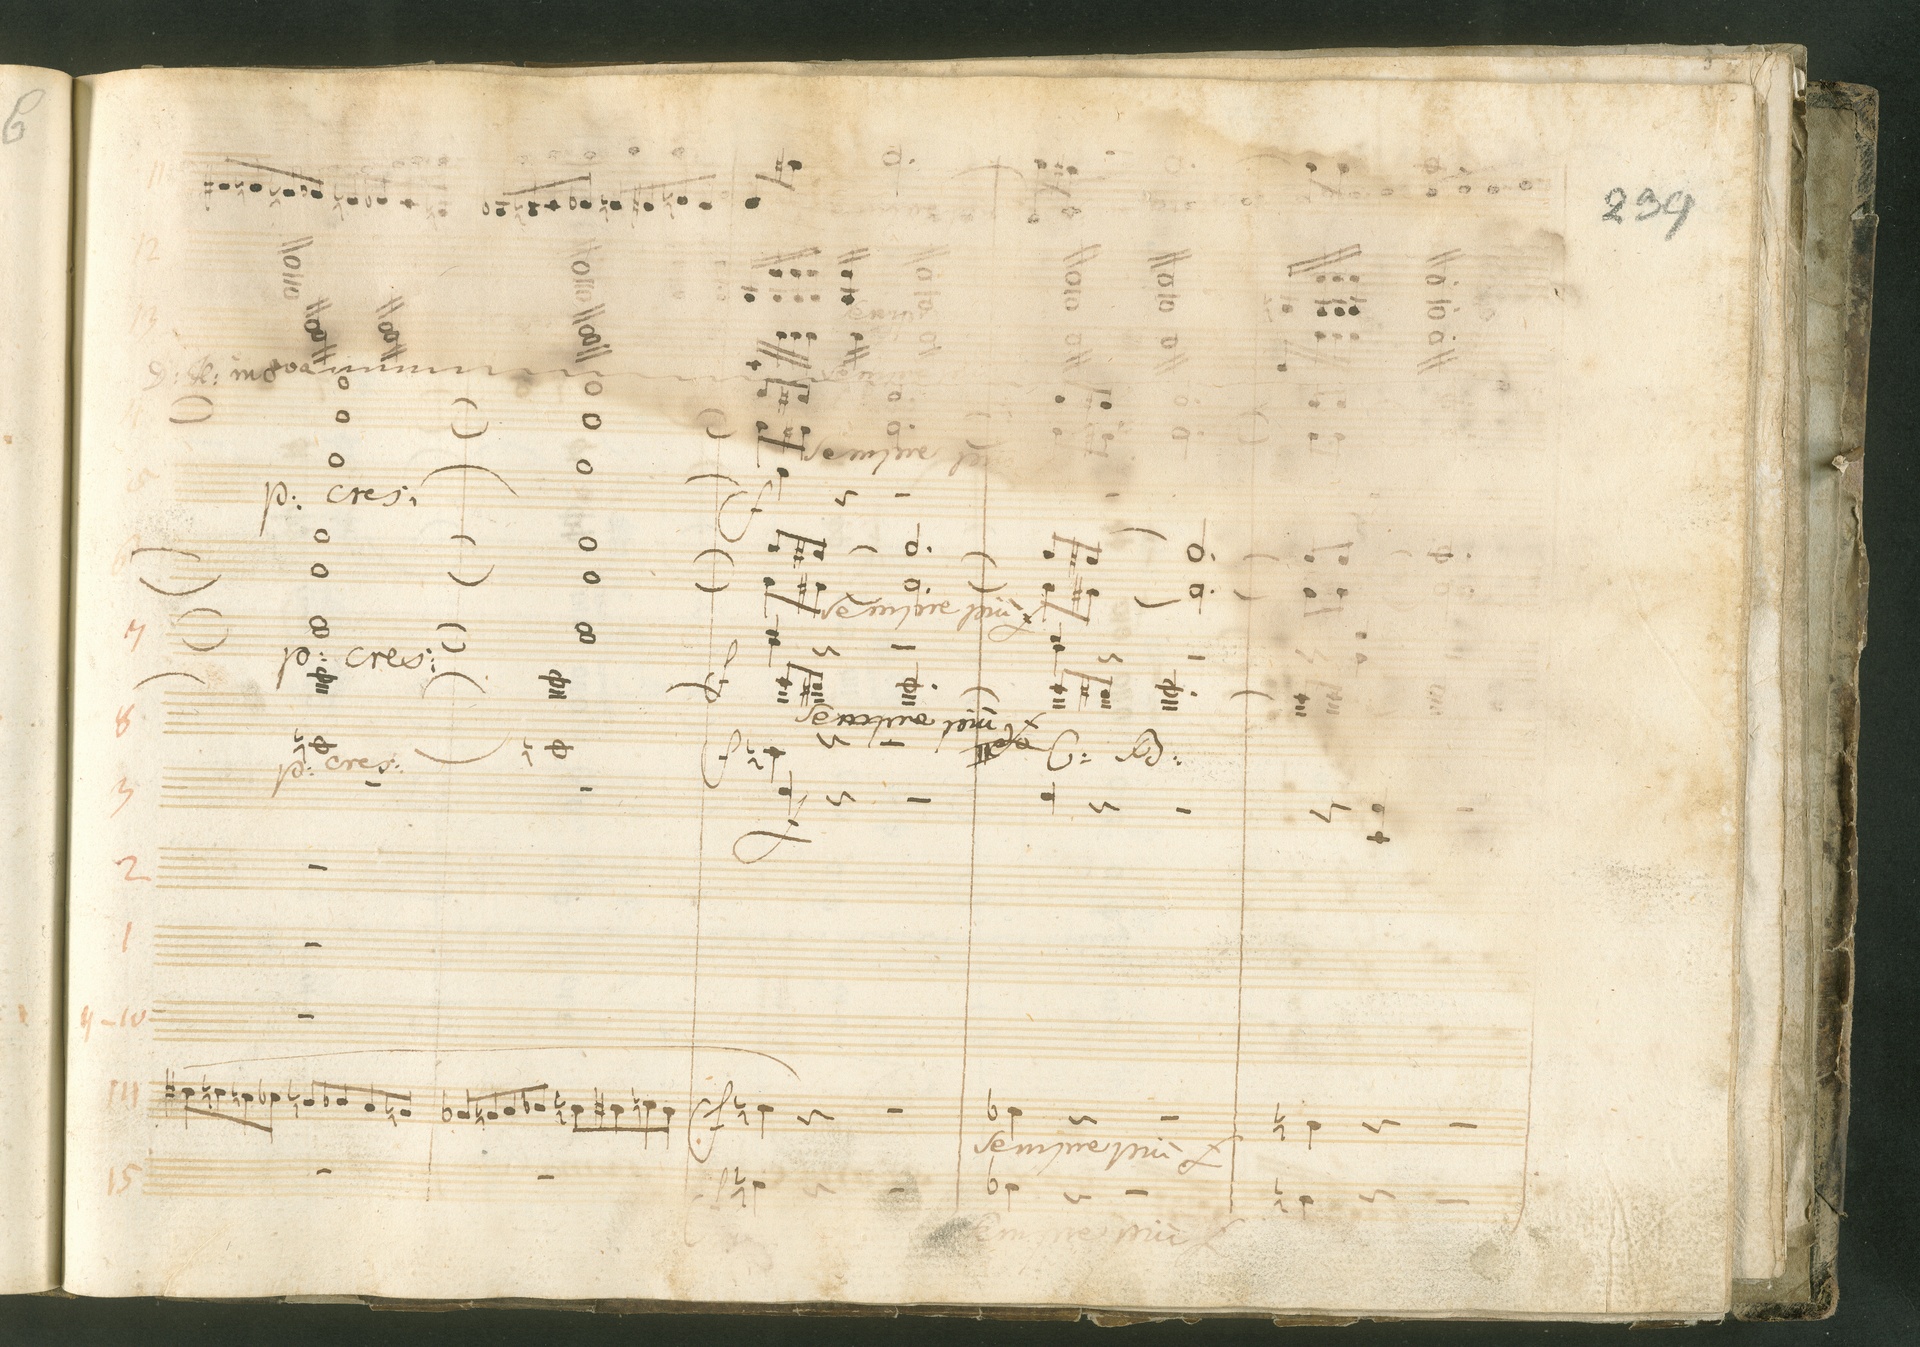 6
11
239
12
13
in 8va
sempre
5
p: cres:
f
6
sempre più f
7
p: cres:
f
sempre più f
8
p: cres:
f
3
f
2
1
9-10
14
f
sempre più f
15
f
sempre più f